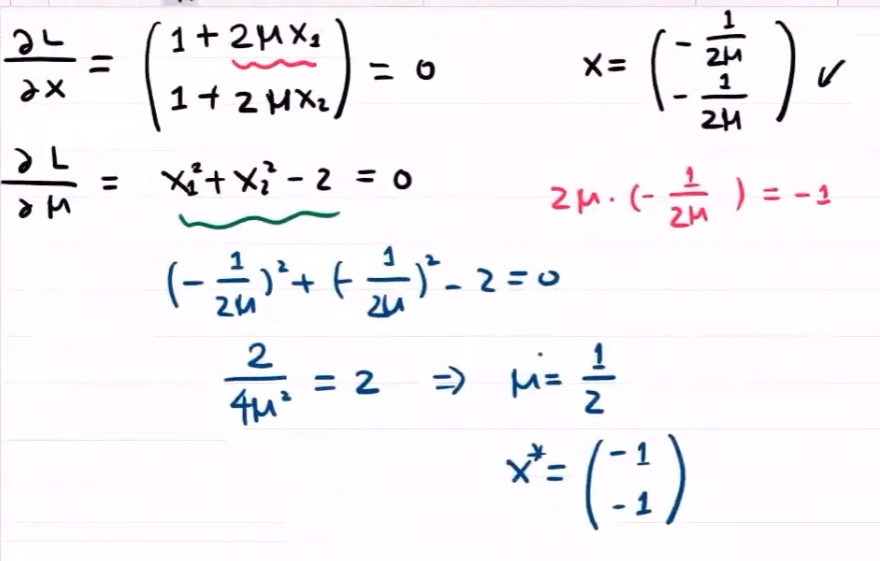 ∂L/∂x = (1 + 2μx₁ ; 1 + 2μx₂) = 0    x = (-1/2μ ; -1/2μ) ✓
∂L/∂μ = x₁² + x₂² - 2 = 0    2μ · (-1/2μ) = -1
(-1/2μ)² + (-1/2μ)² - 2 = 0
2/4μ² = 2 ⇒ μ = 1/2
x* = (-1 ; -1)